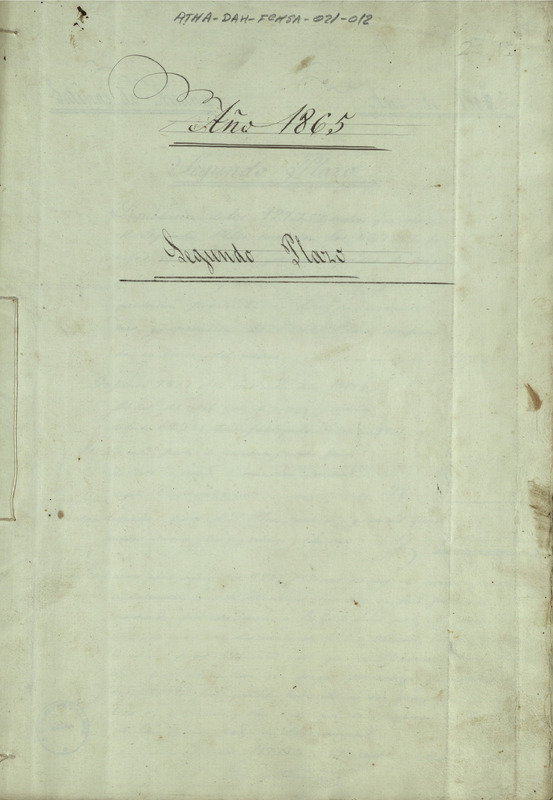 ATHA-DAH-FCHSA-021-012
Año 1865
Segundo Plazo